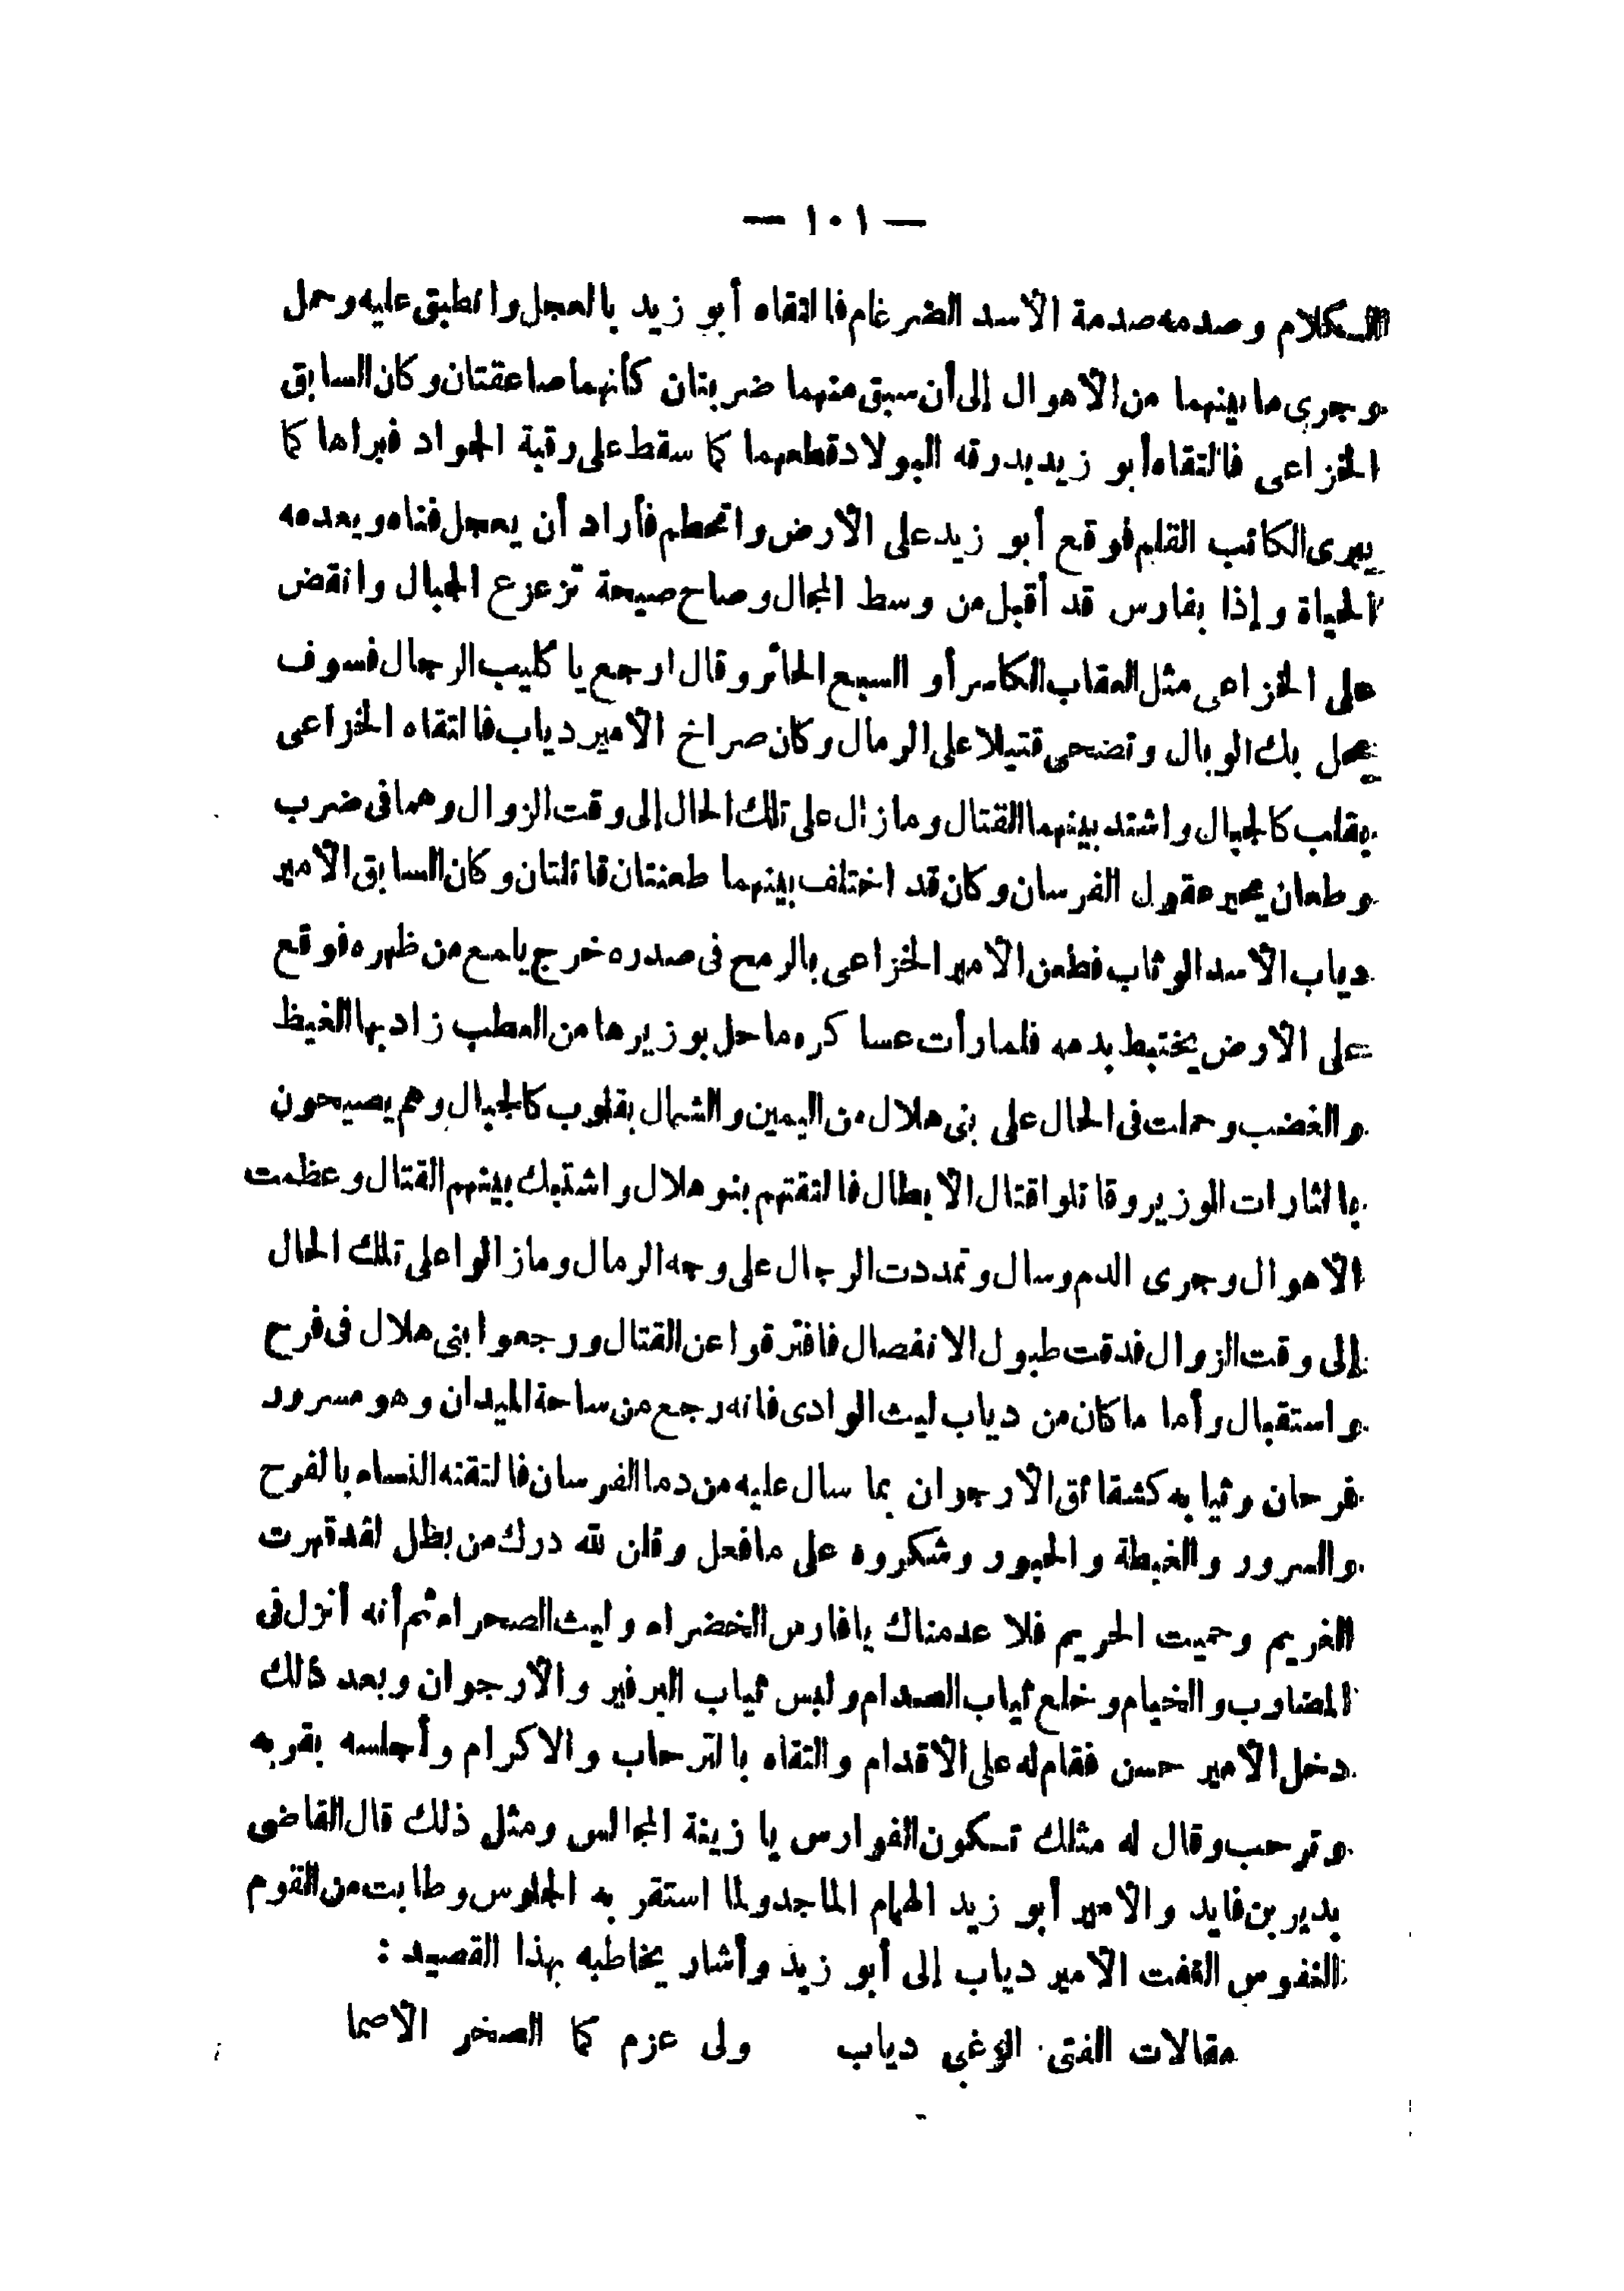 — ١٠١ —
الكلام وصدمه صدمة الأسد الضرغام فالتقاه أبو زيد بالعجل وانطبق عليه وحمل
وجرى ما بينهما من الأهوال إلى أن سبق منهما ضربتان كأنهما صاعقتان وكان السابق
الخزاعى فالتقاه أبو زيد بدرقه البولاد قطعهما كما سقط على رقبة الجواد فبراها كما
يبرى الكاتب القلم فوقع أبو زيد على الأرض واتحطم فأراد أن يعجل فناه ويعدمه
الحياة وإذا بفارس قد أقبل من وسط المجال وصاح صيحة تزعزع الجبال وانقض
على الخزاعى مثل العقاب الكاسر أو السبع الحائر وقال ارجع يا كليب الرجال فسوف
يحل بك الوبال وتضحى قتيلا على الرمال وكان صراخ الأمير دياب فالتقاه الخزاعى
بقلب كالجبال واشتد بينهما القتال وما زال على تلك الحال إلى وقت الزوال وهما فى ضرب
وطعان يحير عقول الفرسان وكان قد اختلف بينهما طعنتان قاتلتان وكان السابق الأمير
دياب الأسد الوثاب فطعن الأمير الخزاعى بالرمح فى صدره خرج يلمع من ظهره فوقع
على الأرض يختبط بدمه فلما رأت عساكره ما حل بوزيرها من العطب زاد بها الغيظ
والغضب وحملت فى الحال على بنى هلال من اليمين والشمال بقلوب كالجبال وهم يصيحون
بالثارات الوزير وقاتلوا قتال الابطال فالتقتهم بنو هلال واشتبك بينهم القتال وعظمت
الاهوال وجرى الدم وسال وتمددت الرجال على وجه الرمال وما زالوا على تلك الحال
إلى وقت الزوال فدقت طبول الانفصال فافترقوا عن القتال ورجعوا بنى هلال فى فرح
واستقبال وأما ما كان من دياب ليث الوادى فانه رجع من ساحة الميدان وهو مسرور
فرحان وثيابه كشقائق الأرجوان بما سال عليه من دما الفرسان فالتقته النساء بالفرح
والسرور والغبطة والحبور وشكروه على ما فعل وقلن لله درك من بطل لقد قهرت
الغريم وحميت الحريم فلا عدمناك يا فارس الخضراء وليث الصحراء ثم أنه أنزل فى
المضاوب والخيام وخلع ثياب الصدام ولبس ثياب البرفير والأرجوان وبعد ذلك
دخل الأمير حسن فقام له على الأقدام والتقاه بالترحاب والاكرام وأجلسه بقربه
وترحب وقال له مثلك تكون الفوارس يا زينة المجالس ومثل ذلك قال القاضى
بدير بن فايد والأمير أبو زيد الهمام الماجد ولما استقر به الجلوس وطابت من القوم
النفوس التفت الأمير دياب إلى أبو زيد وأشار يخاطبه بهذا القصيد :
مقالات الفتى الزغبى دياب ولى عزم كما الصخر الأصما